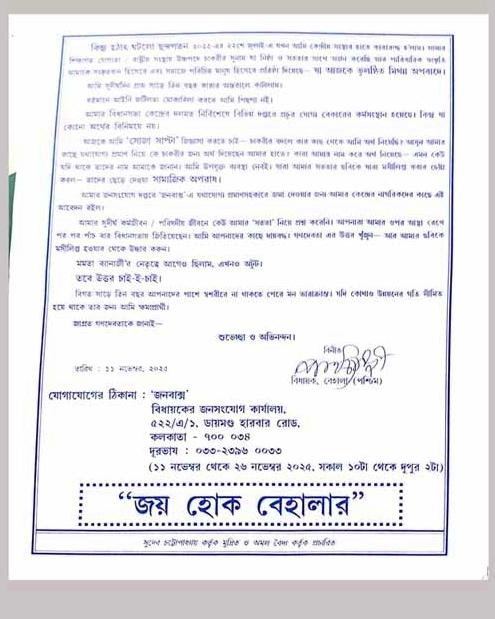 কিন্তু হঠাৎ ঘটলো ছন্দপতন ২০২২-এর ২২শে জুলাই-এ যখন আমি কেন্দ্রীয় সংস্থার হাতে কারারুদ্ধ হ'লাম। আমার
শিক্ষাগত যোগ্যতা / রাষ্ট্রীয় সংস্থায় উচ্চপদে চাকরীর সুনাম যা নিষ্ঠা ও সততার সাথে অর্জন করেছি আর পারিবারিক সংস্কৃতি
আমাকে সংস্কারবান হিসেবে এবং সমাজে পরিচিত মানুষ হিসেবে প্রতিষ্ঠা দিয়েছে– যা আজকে ভূলুণ্ঠিত মিথ্যা অপবাদে।
আমি সুদীর্ঘদিন প্রায় সাড়ে তিন বছর কারার অন্তরালে কাটালাম।
বর্তমানে আইনি জটিলতা মোকাবিলা করতে আমি পিছপা নই।
আমার বিধানসভা কেন্দ্রের দলমত নির্বিশেষে বিভিন্ন দপ্তরে প্রচুর যোগ্য বেকারের কর্মসংস্থান হয়েছে। কিন্তু তা
কোনো অর্থের বিনিময়ে নয়।
আজকে আমি 'সোজা সাপ্টা' জিজ্ঞাসা করতে চাই– চাকরীর বদলে কার কাছ থেকে আমি অর্থ নিয়েছি? আসুন আমার
কাছে যথাযোগ্য প্রমাণ নিয়ে কে চাকরীর জন্য অর্থ দিয়েছেন আমার হাতে। কারা আমার নাম করে অর্থ নিয়েছে – এমন কেউ
যদি থাকে তাদের নাম আমাকে জানান। আমি উপযুক্ত ব্যবস্থা নেবই। যারা আমার সততার ছবিকে যারা মসীলিপ্ত করার চেষ্টা
করল– তাদের ছেড়ে দেওয়া সামাজিক অপরাধ।
আমার জনসংযোগ দপ্তরে 'জনবাক্স'-এ যথাযোগ্য প্রমাণসহকারে জমা দেওয়ার জন্য আমার কেন্দ্রের নাগরিকদের কাছে এই
আবেদন রইল।
আমার সুদীর্ঘ কর্মজীবন / পরিষদীয় জীবনে কেউ আমার 'সততা' নিয়ে প্রশ্ন করেনি। আপনারা আমার ওপর আস্থা রেখে
পর পর পাঁচ বার বিধানসভায় জিতিয়েছেন। আমি আপনাদের কাছে দায়বদ্ধ। গণদেবতা এর উত্তর খুঁজুন– আর আমার ছবিকে
মসীলিপ্ত হওয়ার থেকে উদ্ধার করুন।
মমতা ব্যানার্জী'র নেতৃত্বে আগেও ছিলাম, এখনও অটুট।
তবে উত্তর চাই-ই-চাই।
বিগত সাড়ে তিন বছর আপনাদের পাশে স্বশরীরে না থাকতে পেরে মন ভারাক্রান্ত। যদি কোথাও উন্নয়নের গতি সীমিত
হয়ে থাকে তার জন্য আমি ক্ষমাপ্রার্থী।
জাগ্রত গণদেবতাকে জানাই–
শুভেচ্ছা ও অভিনন্দন।
বিনীত
তারিখ : ১১ নভেম্বর, ২০২৫
বিধায়ক, বেহালা (পশ্চিম)
যোগাযোগের ঠিকানা : 'জনবাক্স'
বিধায়কের জনসংযোগ কার্যালয়,
৫২২/এ/১, ডায়মণ্ড হারবার রোড,
কলকাতা - ৭০০ ০৩৪
দূরভাষ : ০৩৩-২৩৯৬ ০০৩৩
(১১ নভেম্বর থেকে ২৬ নভেম্বর ২০২৫, সকাল ১০টা থেকে দুপুর ২টা)
“জয় হোক বেহালার”
সুদেব চট্টোপাধ্যায় কর্তৃক মুদ্রিত ও অমল বৈদ্য কর্তৃক প্রচারিত